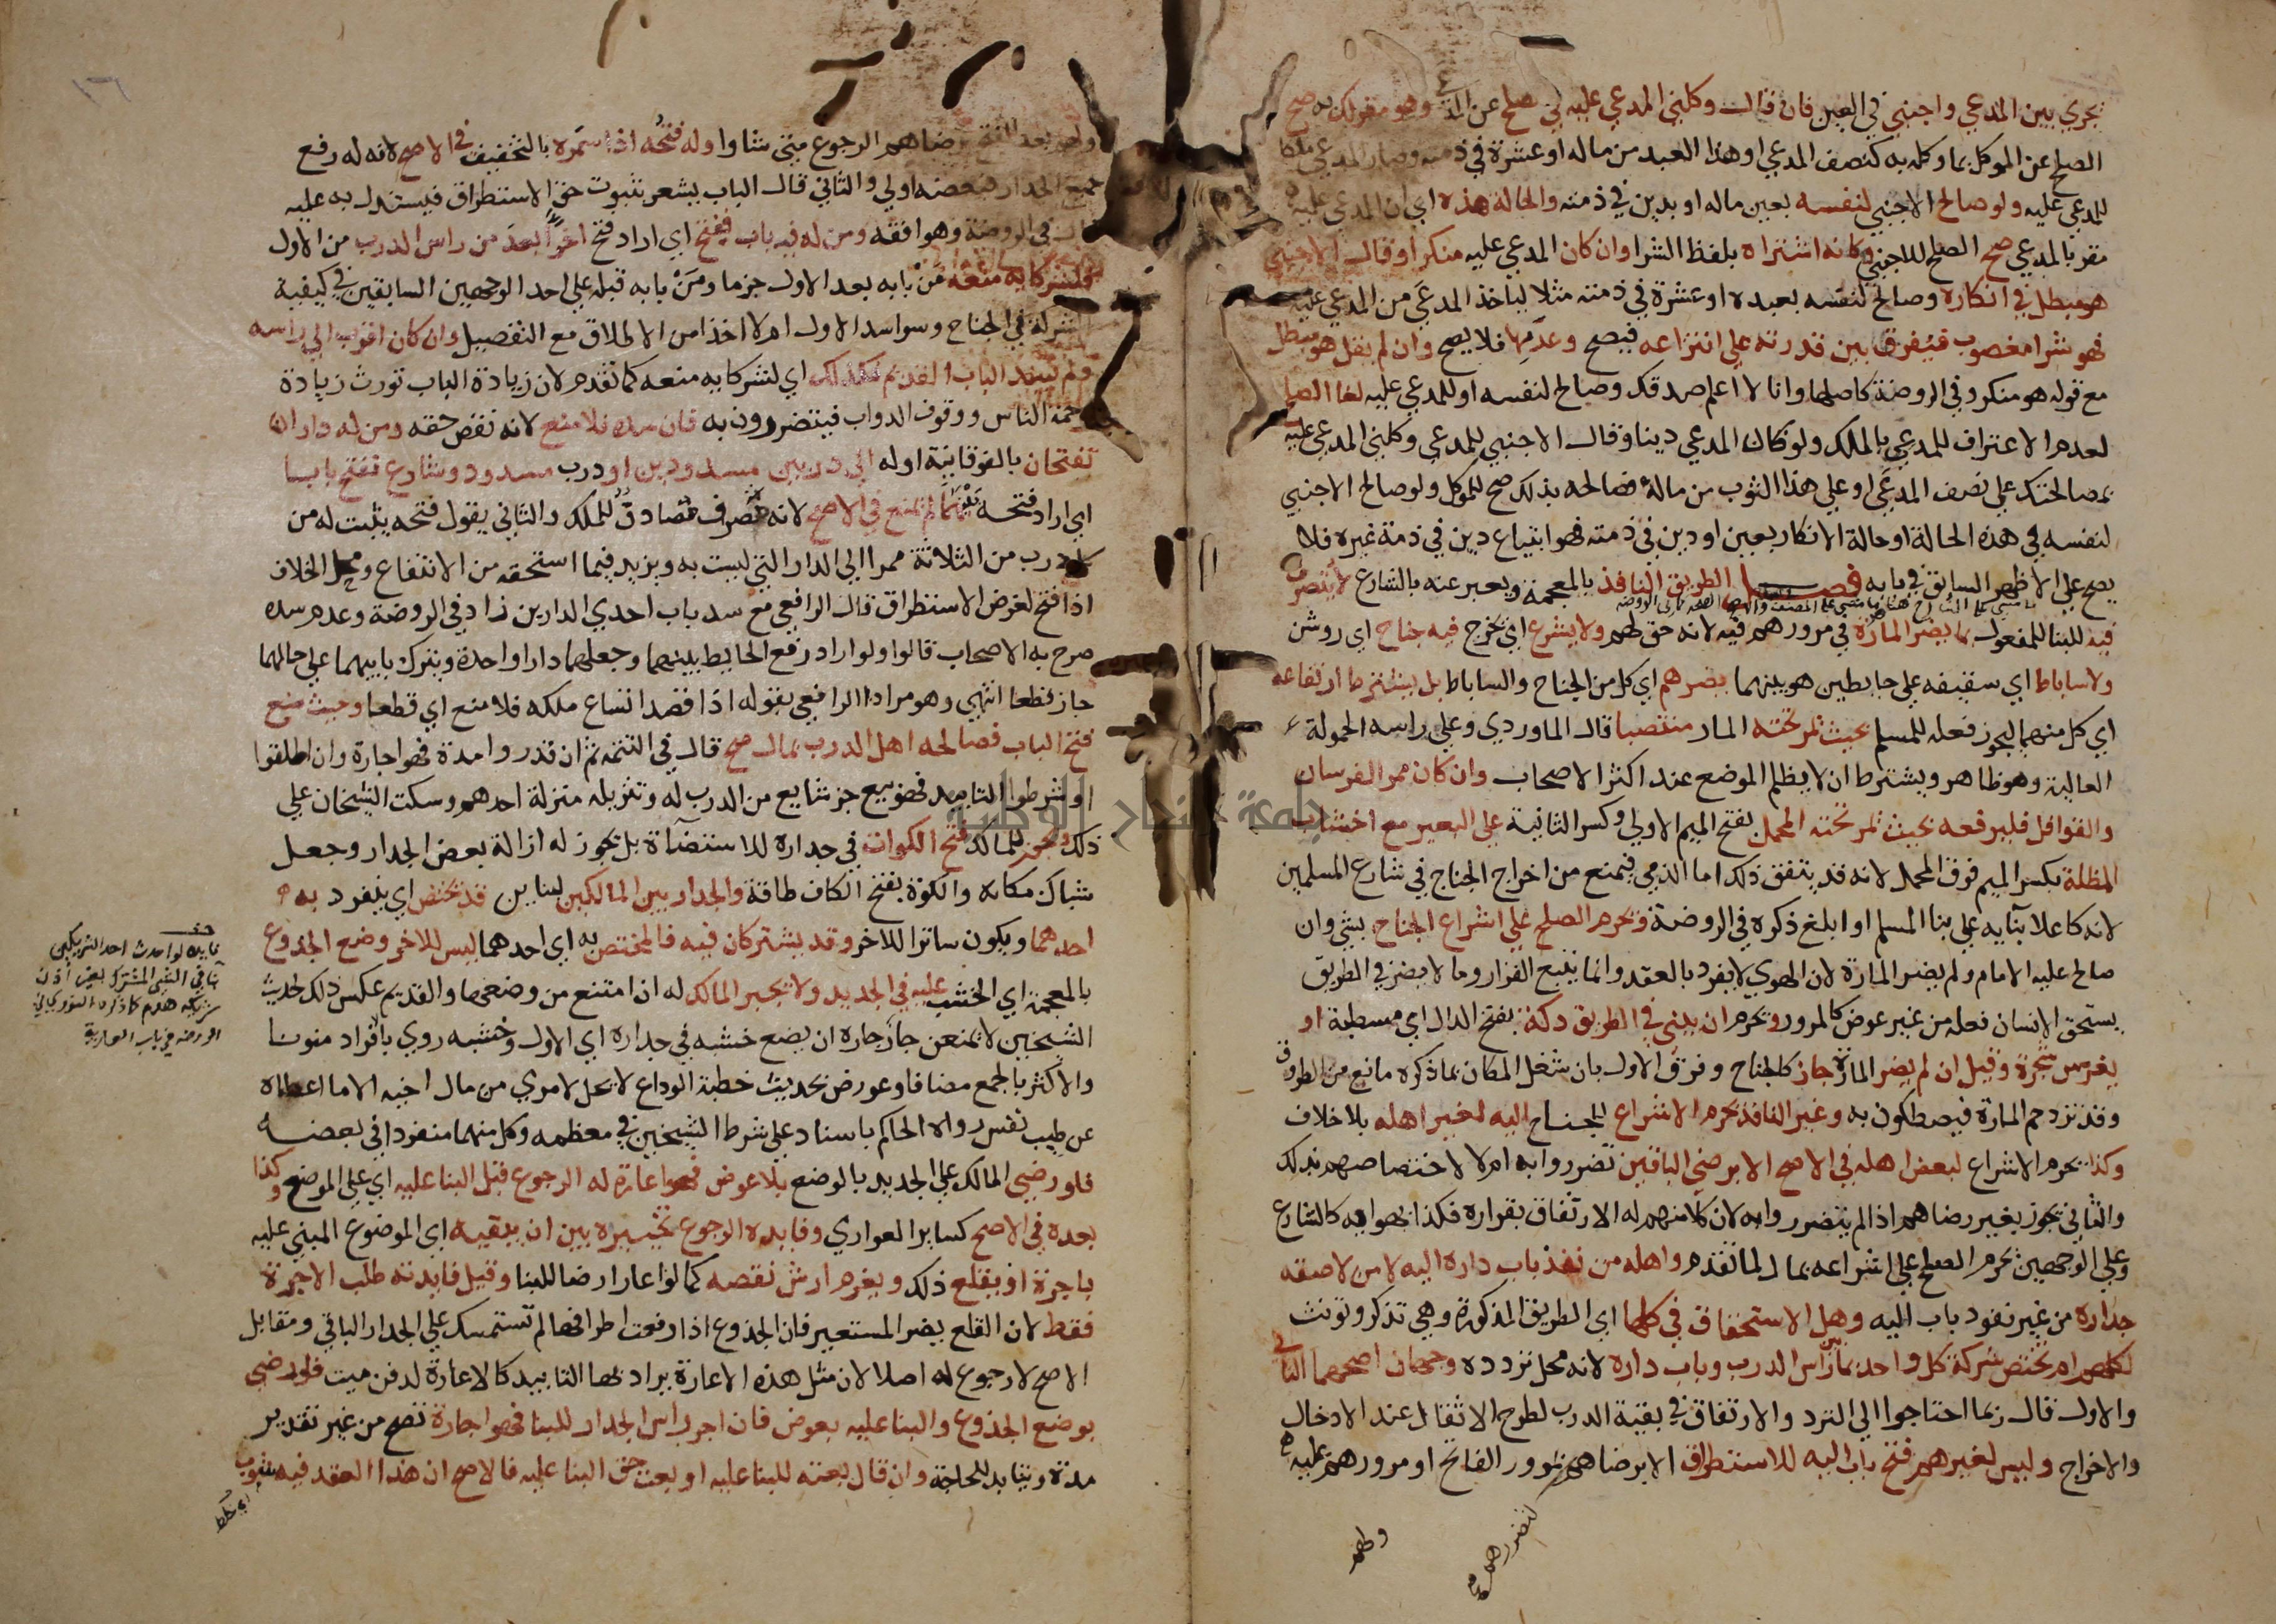 يجري بين المدعي واجنبي في العين فان قال وكلني المدعي عليه في صلح عن المدعي وهو مقر لك به صح
الصلح عن الموكل بما وكله به كنصف المدعي او هذا العبد من ماله او عشرة في ذمته وصار المدعي ملكا
للمدعي عليه ولو صالح الاجنبي لنفسه بعين ماله او بدين في ذمته والحالة هذه اي ان المدعي عليه
مقر بالمدعي صح الصلح للاجنبي وكانه اشتراه بلفظ الشرا وان كان المدعي عليه منكرا وقال الاجنبي
هو مبطل في انكاره وصالح لنفسه بعبده او عشرة في ذمته مثلا لياخذ المدعَي من المدعي عليه
فهو شرا مغصوب فيفرق بين قدرته علي انتزاعه فيصح وعدمها فلا يصح وان لم يقل هو مبطل
مع قوله هو منكر وفي الروضة كاصلها وانا لا اعلم صدقك وصالح لنفسه او للمدعي عليه لغا الصلح
لعدم الاعتراف للمدعي بالملك ولو كان المدعي دينا وقال الاجنبي للمدعي وكلني المدعي عليه
بمصالحتك علي نصف المدعَي او علي هذا الثوب من ماله فصالحه بذلك صح للموكل ولو صالح الاجنبي
لنفسه في هذه الحالة او حالة الانكار بعين او دين في ذمته فهو ابتياع دين في ذمة غيره فلا
يصح علي الاظهر السابق في بابه فصل الطريق النافذ بالمعجمة ويعبر عنه بالشارع لا يتصرف
فيه للبنا للمفعول بما يضر المارة في مرورهم فيه لانه حق لهم ولا يشرع اي يخرج فيه جناح اي روشن
ولا ساباط اي سقيفه علي حايطين هو بينهما يضرهم اي كل من الجناح والساباط بل يشترط ارتفاعه
اي كل منهما ليجوز فعله للمسلم بحيث يمر تحته المار منتصبا قال الماوردي وعلي راسه الحمولة
العالية وهو ظاهر ويشترط ان لا يظلم الموضع عند اكثر الاصحاب وان كان ممر الفرسان
والقوافل فليرفعه بحيث يمر تحته المحمل بفتح الميم الاولي وكسر الثانية علي البعير مع اخشاب
المظلة بكسر الميم فوق المحمل لانه قد يتفق ذلك اما الذمي فيمنع من اخراج الجناح في شارع المسلمين
لانه كاعلا بنايه علي بنا المسلم او ابلغ ذكره في الروضة ويحرم الصلح علي اشراع الجناح بشي وان
صالح عليه الامام ولم يضر المارة لان الهوي لا يفرد بالعقد وانما يتبع القرار وما لا يضر في الطريق
يستحق الانسان فعله من غير عوض كالمرور ويحرم ان يبني في الطريق دكة بفتح الدال اي مسطبة او
يغرس شجرة وقيل ان لم يضر المارة جاز كالجناح وفرق الاول بان شغل المكان بما ذكره مانع من الطروق
وقد تزدحم المارة فيصطكون به وغير النافذ يحرم الاشراع للجناح اليه لغير اهله بلا خلاف
وكذا يحرم الاشراع لبعض اهله في الاصح الا برضي الباقين تضرروا به ام لا لاختصاصهم بذلك
والثاني يجوز بغير رضاهم اذا لم يتضرروا به لان كلا منهم له الارتفاق بقراره فكذا بهوايه كالشارع
وعلي الوجهين يحرم الصلح علي اشراعه بمال لما تقدم واهله من نفذ باب داره اليه لا من لاصقه
جداره من غير نفود باب اليه وهل الاستحقاق في كلها اي الطريق المذكورة وهي تذكر وتونث
لكلهم ام يختص شركة كل واحد بما بين راس الدرب وباب داره لانه محل تردده وجهان اصحهما الثاني
والاول قال ربما احتاجوا الي التردد والارتفاق في بقية الدرب لطرح الاثقال عند الادخال
والاخراج وليس لغيرهم فتح باب اليه للاستطراق الا برضاهم لتضررهم بمرور الفاتح او مرورهم عليه
ولهم
بعد الفتح برضاهم الرجوع متي شاوا وله فتحه اذا سمره بالتخفيف في الاصح لانه له رفع
جميع الجدار فبعضه اولي والثاني قال الباب يشعر بثبوت حق الاستطراق فيستدل به عليه
قال في الروضة وهو افقه ومن له فيه باب ففتح اي اراد فتح اخر ابعد من راس الدرب من الاول
فلشركايه منعه مَنْ بابه بعد الاول جزما ومَنْ بابه قبله علي احد الوجهين السابقين في كيفية
الشركة في الجناح وسواسد الاول ام لا اخذا من الاطلاق مع التفصيل وان كان اقرب الي راسه
ولم يسد الباب القديم فكذلك اي لشركايه منعه كما تقدم لان زيادة الباب تورث زيادة
زحمة الناس ووقوف الدواب فيتضررون به فان سده فلا منع لانه نقض حقه ومن له داران
تفتحان بالفوقانية اوله الي دربين مسدودين او درب مسدود وشارع ففتح بابا
اي اراد فتحه بينهما لم يمنع في الاصح لانه تصرف مصادف للملك والثاني يقول فتحه يثبت له من
كل درب من الثلاثة ممرا الي الدار التي ليست به ويزيد فيما استحقه من الانتفاع ومحل الخلاف
اذا فتح لغرض الاستطراق قال الرافعي مع سد باب احدي الدارين زاد في الروضة وعدم سده
صرح به الاصحاب قالوا ولو اراد رفع الحايط بينهما وجعلهما دارا واحدة ويترك بابيهما علي حالهما
جاز قطعا انتهي وهو مراد الرافعي بقوله اذا قصد اتساع ملكه فلا منع اي قطعا وحيث منع
فتح الباب فصالحه اهل الدرب بمال صح قال في التتمة ثم ان قدروا مدة فهو اجارة وان اطلقوا
او شرطوا التابيد فهو بيع جز شايع من الدرب له وتنزيله منزلة احدهم وسكت الشيخان علي
ذلك ويجوز للمالك فتح الكوات في جداره للاستضاة بل يجوز له ازالة بعض الجدار وجعل
شباك مكانه والكوة بفتح الكاف طاقة والجدار بين المالكين لبنايين قد يختص اي ينفرد به
احدهما ويكون ساترا للاخر وقد يشتركان فيه فالمختص به اي احدهما ليس للاخر وضع الجذوع
بالمعجمة اي الخشب عليه في الجديد ولا يجبر المالك له ان امتنع من وضعها والقديم عكس ذلك لحديث
الشيخين لا يمنعن جار جاره ان يضع خشبه في جداره اي الاول وخشبه روي بافراد منونا
والاكثر بالجمع مضافا وعورض بحديث خطبة الوداع لا يحل لامري من مال اخيه الا ما اعطاه
عن طيب نفس رواه الحاكم باسناد علي شرط الشيخين في معظمه وكل منهما منفردا في بعضه
فلو رضي المالك علي الجديد بالوضع بلا عوض فهو اعارة له الرجوع قبل البنا عليه اي علي الموضع وكذا
بعده في الاصح كساير العواري وفايدة الرجوع تخييره بين ان يبقيه اي الموضوع المبني عليه
باجرة او يقلع ذلك ويغرم ارش نقصه كما لو اعار ارضا للبنا وقيل فايدته طلب الاجرة
فقط لان القلع يضر المستعير فان الجذوع اذا رفعت اطرافها لم تستمسك علي الجدار الباقي ومقابل
الاصح لا رجوع له اصلا لان مثل هذه الاعارة يراد بها التابيد كالاعارة لدفن ميت فلو رضي
بوضع الجذوع والبنا عليه بعوض فان اجر راس الجدار للبنا فهو اجارة تصح من غير تقدير
مدة ويتابد للحاجة وان قال بعته للبنا عليه او بعت حق البنا عليه فالاصح ان هذا العقد فيه شوب
فايده لو احدث احد الشريكين
بنا في الشي المشترك بغير اذن
شريكه هدم كما ذكره النووي في
الروضه في باب العارية
جامعة النجاح الوطنية